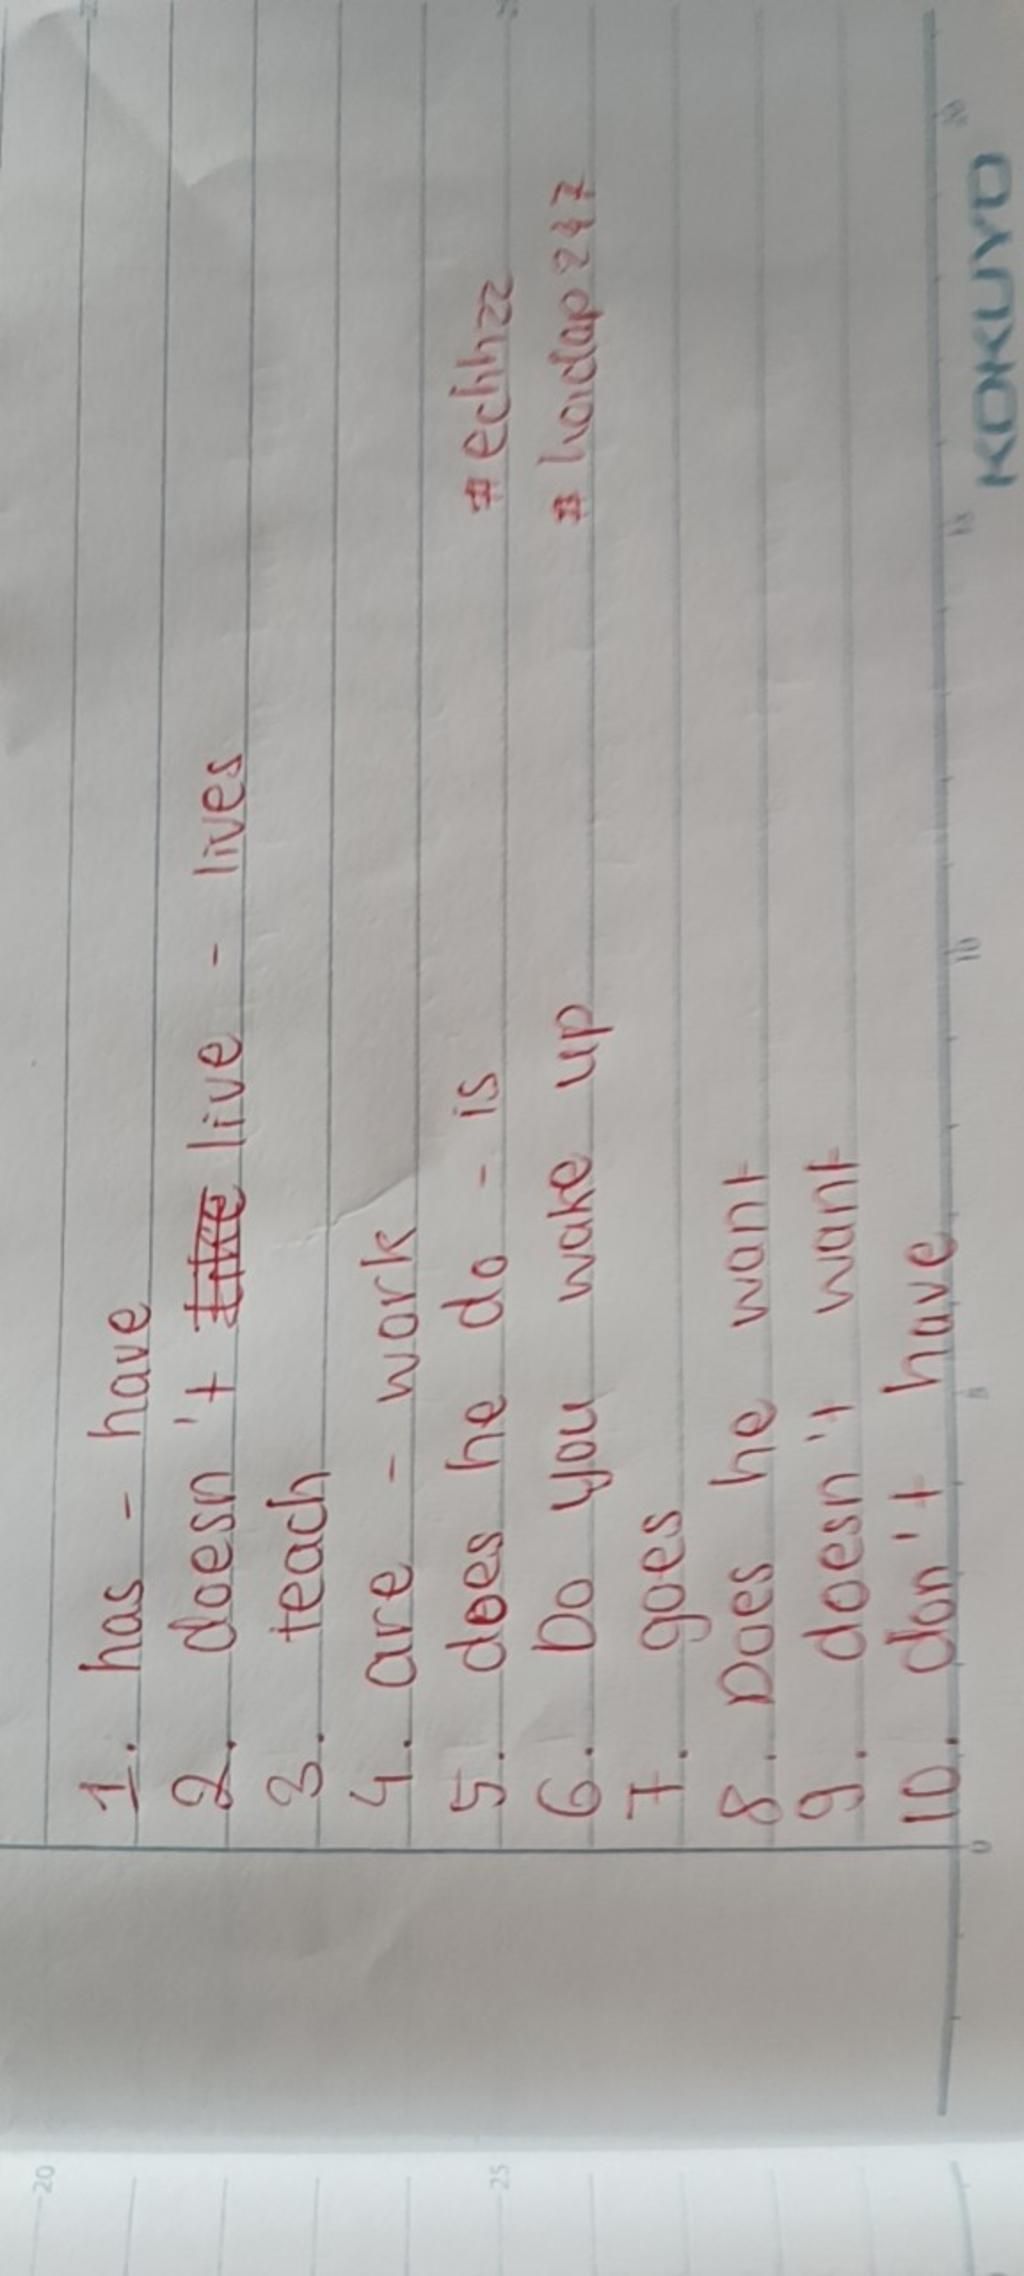 1. has - have
2. doesn't live - lives
3. teach
4. are - work
5. does he do - is #echhzz
6. Do you wake up #hoidap247
7. goes
8. Does he want
9. doesn't want
10. don't have
0 5 10 15 20
KOKUYO
20
25